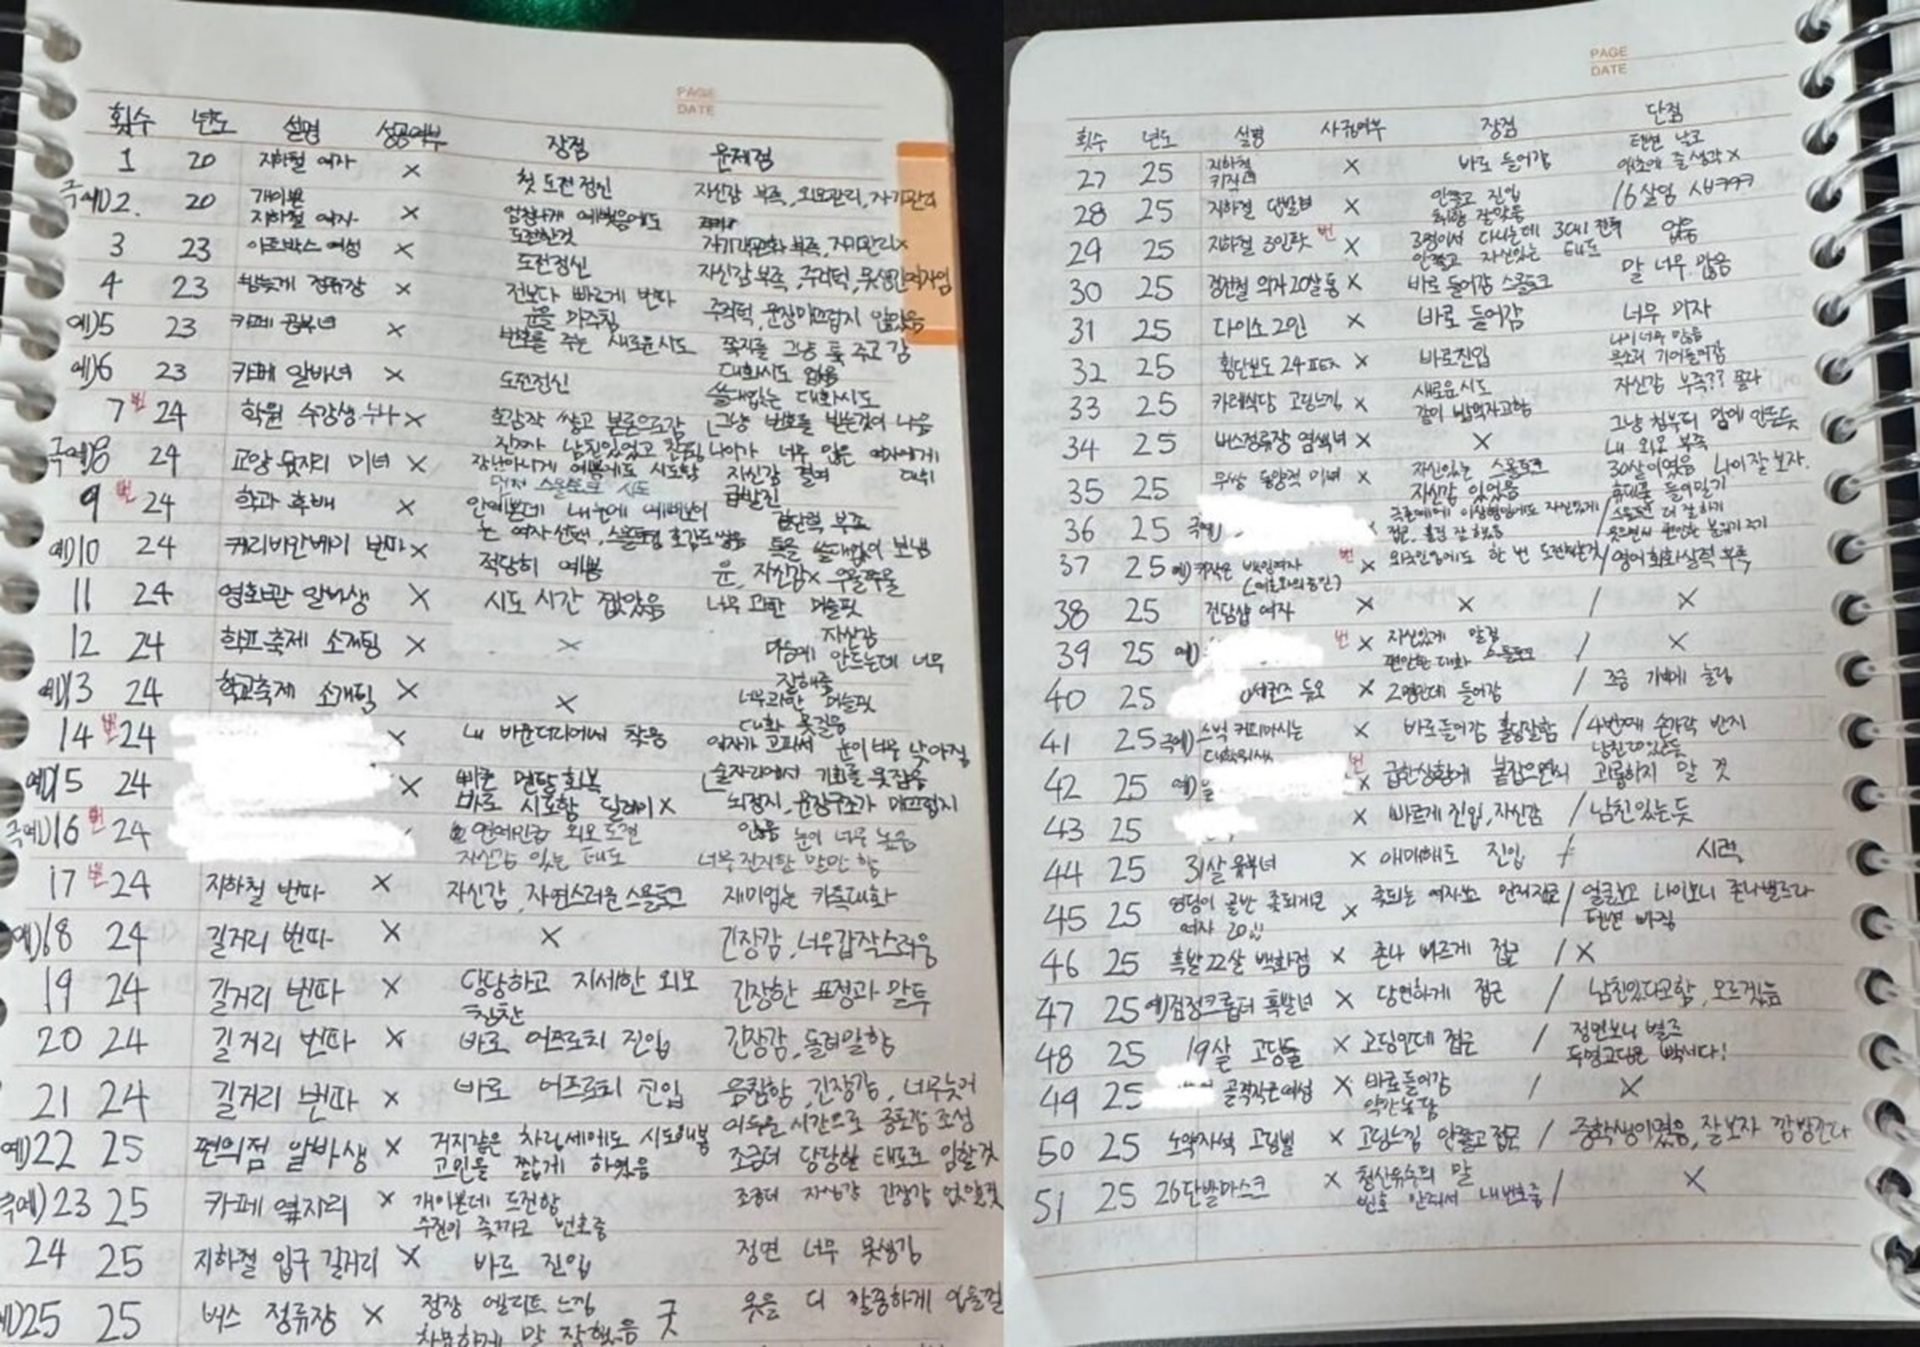 PAGE
DATE
횟수 년도 설명 성공여부 장점 문제점
1 20 지하철 여자 X 첫 도전정신 자신감 부족, 외모관리, 자기관리
극예)2. 20 개이쁜 지하철 여자 X 엄청나게 예뻤음에도 도전한것
3 23 아트박스 여성 X 도전정신 자기객관화 부족, 자기관리X
4 23 버스정류장 X 전보다 빠르게 번따 자신감 부족, 주걱턱, 못생긴여자임
예)5 23 카페 공부녀 X 눈을 마주침 주걱턱, 문장매끄럽지 않았음
번호를 주는 새로운시도 쪽지를 그냥 툭 주고 감
예)6 23 카페 알바녀 X 도전정신 대화시도 없음
쓸데없는 대화시도
7 번 24 학원 수강생 누나 X 호감작 쌓고 본론으로감 그냥 번호를 받는것이 나음
극예)8 24 교양 뒷자리 미녀 X 장난아니게 예쁨에도 시도함 자신감 결여
9 번 24 학과 후배 X 급발진
예)10 24 캐리비안베이 번따 X 적당히 예쁨 결단력 부족
톡을 쓸데없이 보냄
11 24 영화관 알바생 X 시도 시간 짧았음 자신감X 우물쭈물
12 24 학교축제 소개팅 X X 너무 과한 머슬핏
자신감
마음에 안드는데 너무 잘해줌
예)13 24 학교축제 소개팅 X X 너무과한 머슬핏
대화 못걸음
14 번 24 X 내 바운더리에서 작용 여자가 고파서 눈이 너무 낮아짐
예)15 24 X 빠른 멘탈 회복 술자리에서 기회를 못잡음
바로 시도함 딜레이X 뇌정지, 문장구조가 매끄럽지 않음 눈이 너무 높음
극예)16 번 24 연예인급 외모 도전
자신감 있는 태도 너무 진지한 말만 함
17 번 24 지하철 번따 X 자신감, 자연스러운 스몰토크 재미없는 카톡대화
예)18 24 길거리 번따 X X 긴장감, 너무갑작스러움
19 24 길거리 번따 X 당당하고 자세한 외모 칭찬 긴장한 표정과 말투
20 24 길거리 번따 X 바로 어프로치 진입 긴장감, 돌려말함
21 24 길거리 번따 X 바로 어프로치 진입 음침함, 긴장감, 너무늦어
어두운 시간으로 공포감 조성
예)22 25 편의점 알바생 X 거지같은 차림새에도 시도해봄
고민을 짧게 하였음 조금더 당당한 태도로 임할것
극예)23 25 카페 옆자리 X 개이쁜데 도전함 조금더 자신감 긴장감 없앨것
24 25 지하철 입구 길거리 X 바로 진입 정면 너무 못생김
예)25 25 버스 정류장 X 정장 엘리트 느낌 굿 옷을 더 깔끔하게 입을걸
차분하게 말 잘했음
PAGE
DATE
횟수 년도 설명 사귐여부 장점 단점
27 25 지하철 키작녀 X 바로 들어감 텐션 낮고
28 25 지하철 단발녀 X 안쫄고 진입 16살임 시ㅂㅋㅋㅋ
29 25 지하철 3인팟 번 X 3명이서 다니는데 3대1 전투 없음
안쫄고 자신있는 태도
30 25 경전철 의자 20살 통 X 바로 들어감 스몰토크 말 너무 많음
31 25 다이소 2인 X 바로 들어감 너무 여자
32 25 횡단보도 24 X 바로진입 나이너무 많음
목소리 기어들어감
33 25 카레식당 고딩느낌 X 새로운시도 자신감 부족?? 쫄다
같이 밥먹자고함
34 25 버스정류장 염색녀 X X 그냥 첨부터 맘에 안든듯
내 외모 부족
35 25 무쌍 동양적 미녀 X 자신있는 스몰토크 30살이었음 나이 잘 보자.
자신감 있었음 휴대폰 들이밀기
36 25 극예) X 접근, 홀딩 잘 했음 / 스몰토크 더 잘 하기
37 25 예) 키작은 백인여자 번 X 외국인임에도 한 번 도전한것 / 영어회화실력 부족
38 25 전담샵 여자 X X / X
39 25 예) 번 X 자신있게 말검 / X
편안한 대화 스몰토크
40 25 X 2명인데 들어감 / 조금 가볍게 홀딩
41 25 극예) 스벅 커피마시는 대학원생 X 바로들어감 홀딩잘함 / 4번째 손가락 반지
남친있는듯
42 25 예) 번 X 급한상황에 붙잡으면서 괴롭히지 말 것
43 25 X 빠르게 진입, 자신감 / 남친있는듯
44 25 31살 유부녀 X 애매해도 진입 / 시력
45 25 엉덩이 골반 좆되게큰 여자 20 X 좆되는 여자보고 먼저접근 / 얼굴보고 나이보니 존나별로라
텐션 빠짐
46 25 흑발 22살 백화점 X 존나 빠르게 접근 / X
47 25 예) 검정크롭티 흑발녀 X 당연하게 접근 / 남친있다고함, 모르겠음
48 25 19살 고딩들 X 고딩인데 접근 / 정면보니 별로
두명고딩은 빡세다!
49 25 골격작은여성 X 바로들어감 / X
약간농담
50 25 노약자석 고딩삘 X 고딩느낌 안쫄고접근 / 중학생이였음, 잘보자 깜방간다
51 25 26단발마스크 X 청산유수의 말 / X
번호 안줘서 내번호줌